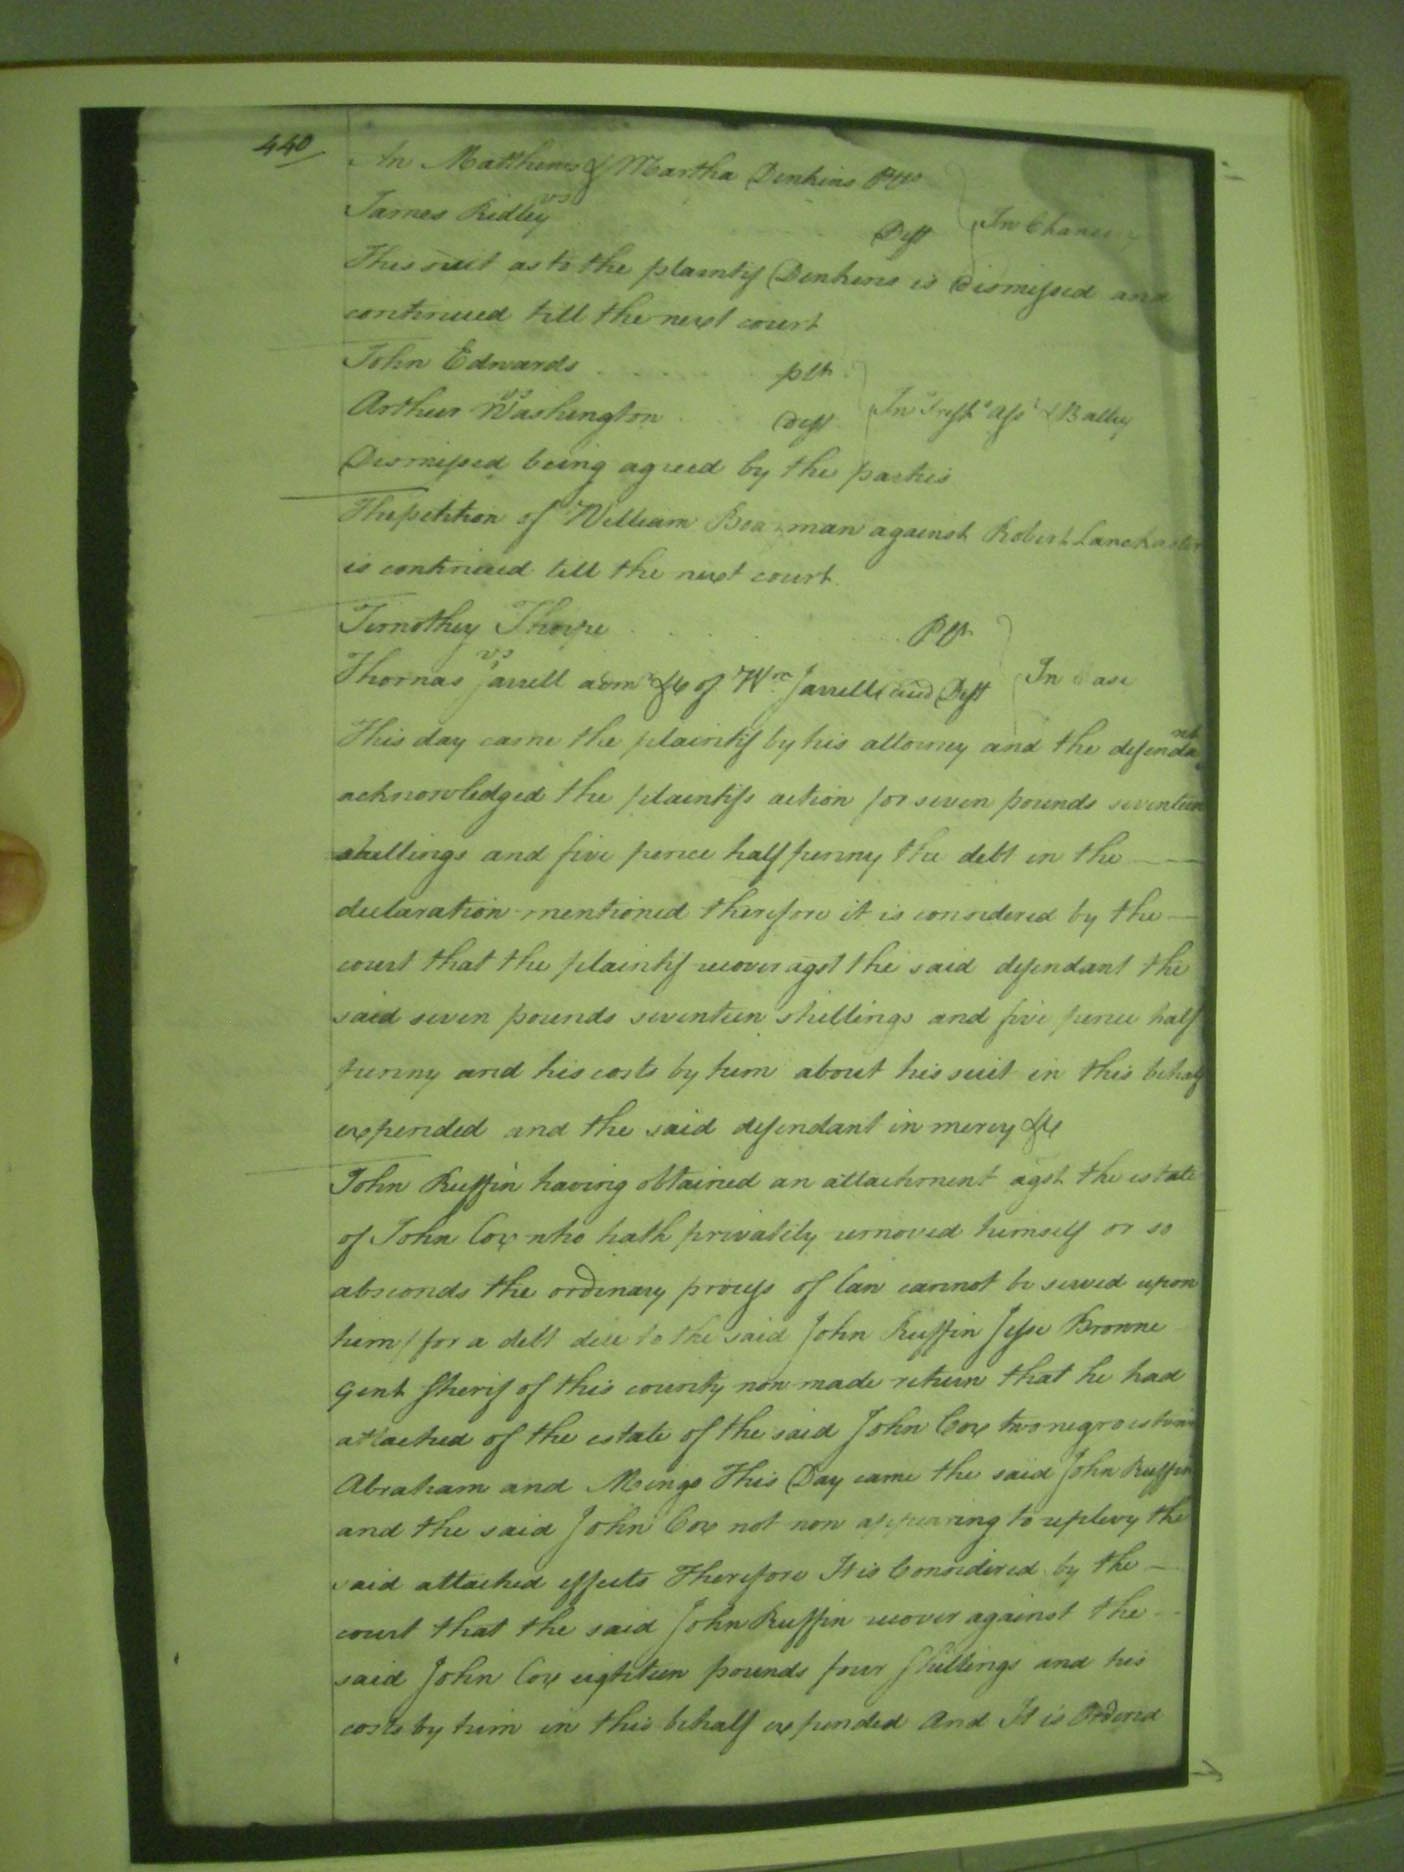 440
An Matthews & Martha Denkins Plts
vs
James Ridley Deft In Chance
This suit as to the plaintif Denkins is Dismissed and
continued till the next court
John Edwards plt
vs
Arthur Washington Deft In Tresps Asst & Battey
Dismissed being agreed by the parties
The petition of William Boazman against Robert Lanchaster
is continued till the next court
Timothey Thorpe Plt
vs
Thomas Jarrell admr &c of Wm Jarrell decd Deft In Case
This day came the plaintif by his attorney and the defendant
acknowledged the plaintifs action for seven pounds seventeen
shillings and five pence half penny the debt in the
declaration mentioned therefore it is considered by the
court that the plaintif recover agst the said defendant the
said seven pounds seventeen shillings and five pence half
penny and his costs by him about his suit in this behalf
expended and the said defendant in mercy &c
John Ruffin having obtained an attachment agst the estate
of John Cox who hath privately removed himself or so
absconds the ordinary process of law cannot be served upon
him / for a debt due to the said John Ruffin Jesse Browne
Gent Sherif of this county now made return that he had
attached of the estate of the said John Cox two negroes
Abraham and Mingo This Day came the said John Ruffin
and the said John Cox not now appearing to replevy the
said attached effects Therefore It is Considered by the
court that the said John Ruffin recover against the
said John Cox eighteen pounds four Shillings and his
costs by him in this behalf expended And It is Ordered